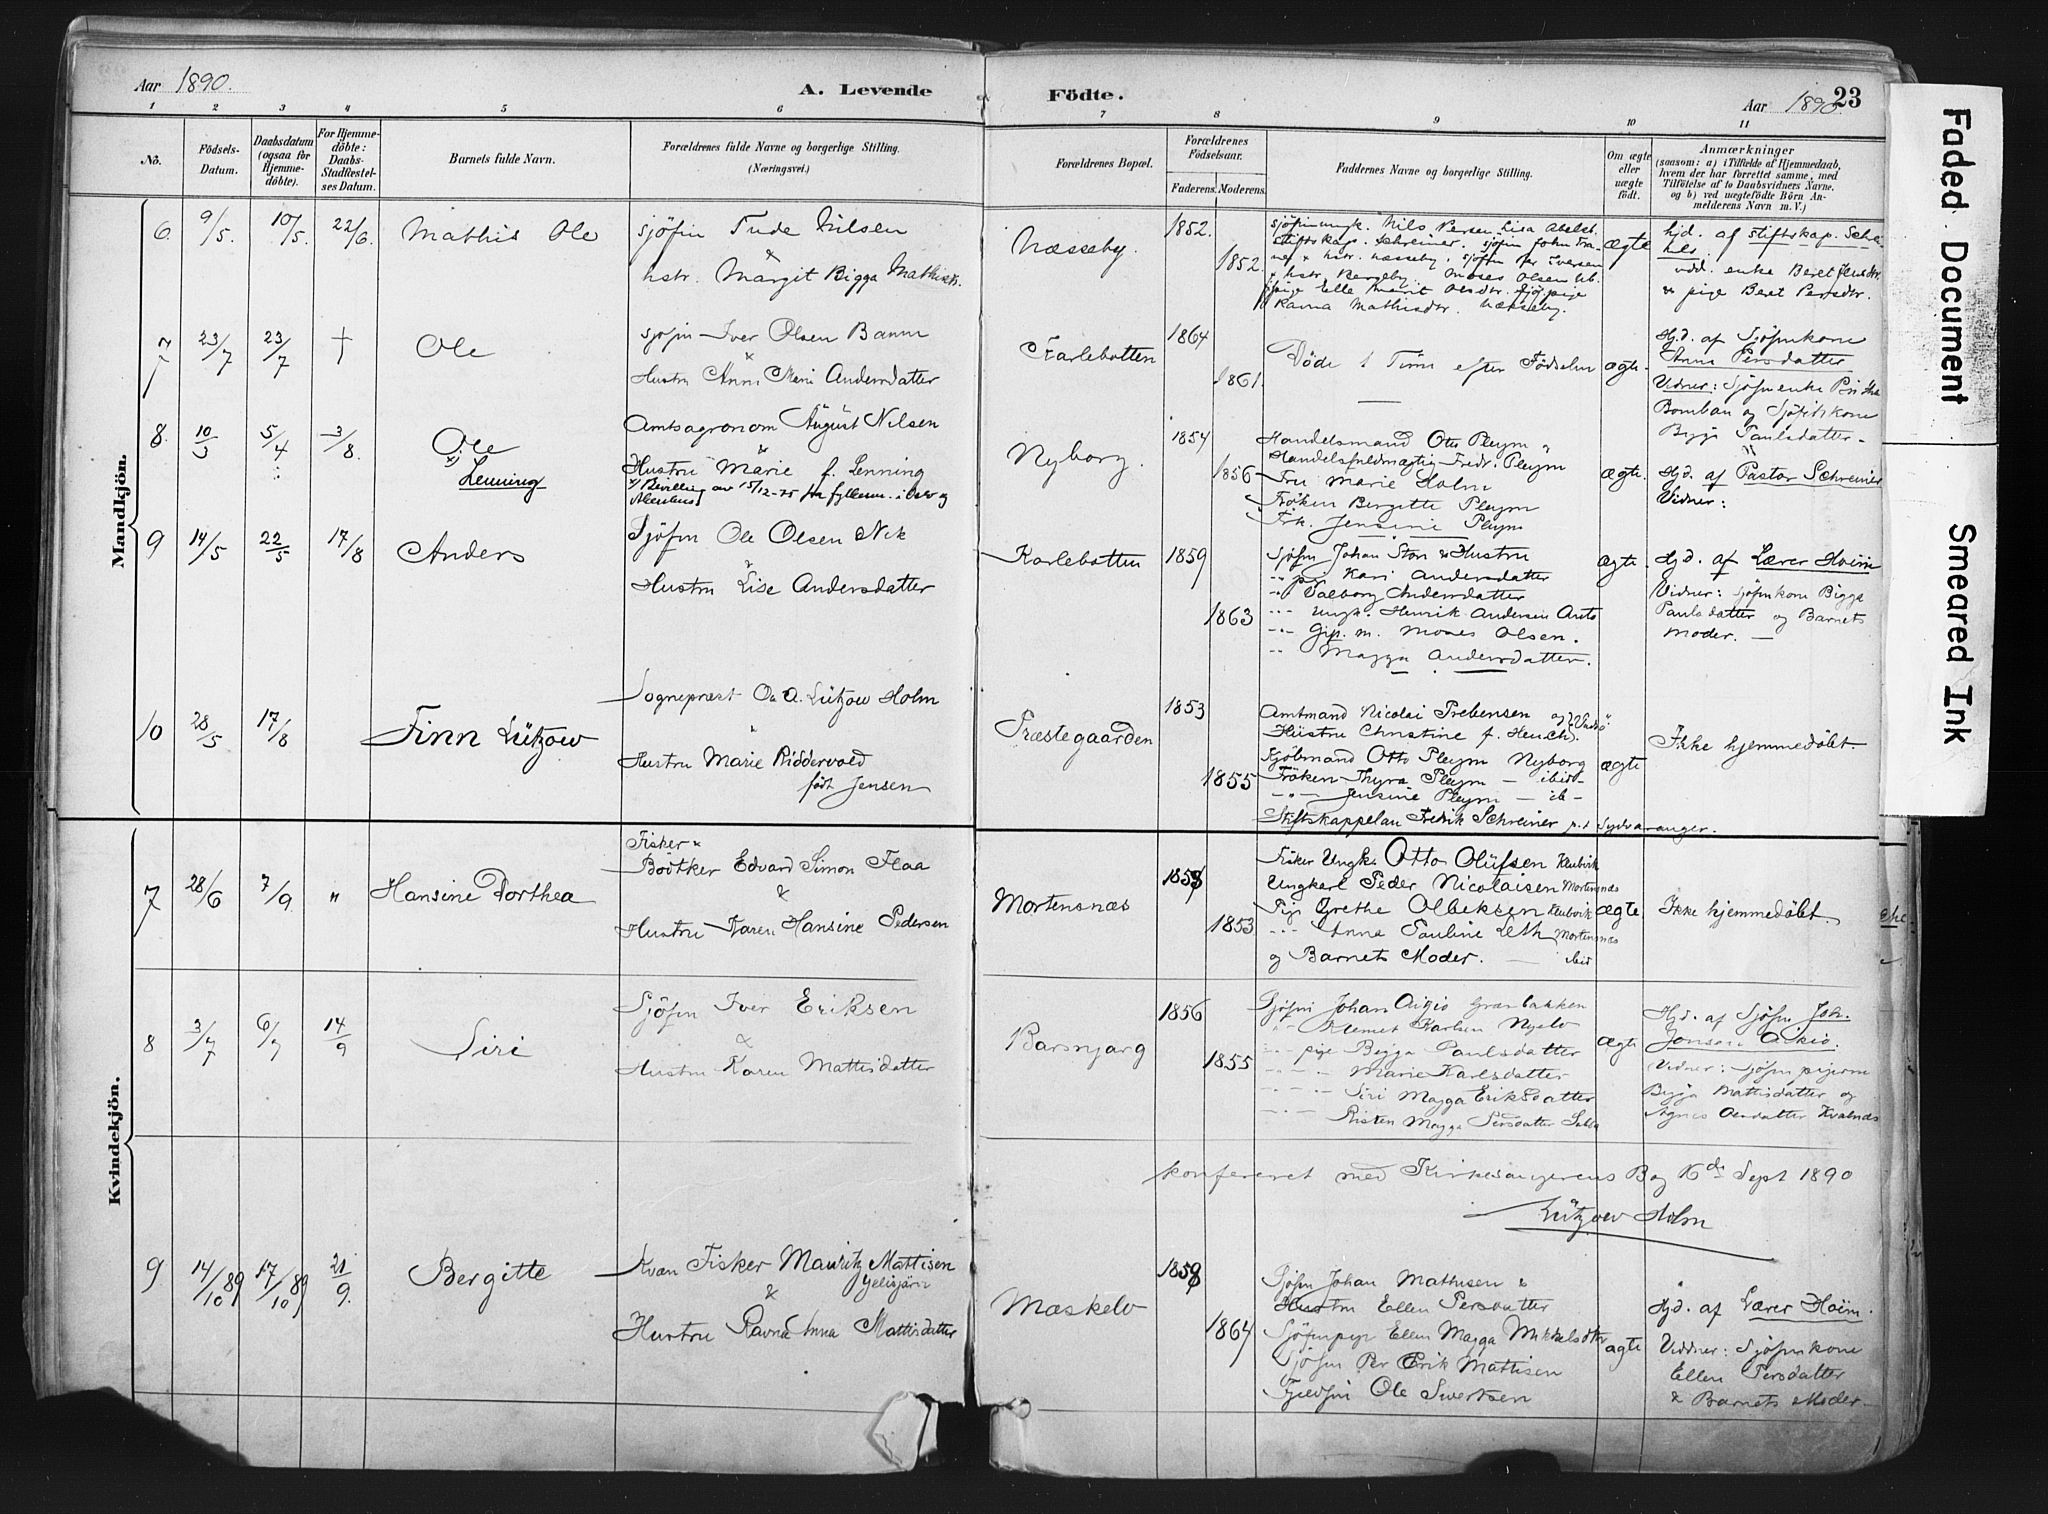 Aar 1890.
A. Levende
Födte.
Aar 1890.
23
1 2 3 4 5 6 7 8 9 10 11
No.
Födsels-
Datum.
Daabsdatum
(ogsaa for
Hjemme-
döbte).
For Hjemme-
döbte:
Daabs-
Stadfæstel-
ses Datum.
Barnets fulde Navn.
Forældrenes fulde Navne og borgerlige Stilling.
(Næringsvei.)
Forældrenes Bopæl.
Forældrenes
Födselsaar.
Faderens. Moderens.
Faddernes Navne og borgerlige Stilling.
Om ægte
eller
uægte
födt.
Anmærkninger
(saasom: a) i Tilfælde af Hjemmedaab,
hvem der har forrettet samme, med
Tilföielse af to Daabsvidners Navne,
og b) ved uægtefödte Börn An-
melderens Navn m. V.)
Mandkjön.
6. 9/5. 10/5. 22/6. Mathis Ole
sjöfin Nilsen
&
hstr. Margit Bigga
Næsseby.
1852.
1852.
Nils Persen Lisa
stiftskap. Schreiner. sjöfin John
hstr. Næsseby. sjöfin Iversen
hstr. Bergeby. Moses Olsen
pige Elle Marit
Ravna Mathisdtr. Næsseby.
ægte
hjd. af stiftskap.
enke Beret
& pige Beret Persdtr.
7 23/7 23/7 † Ole
sjöfin Iver Olsen Banne
&
Hustru Anne Marie Andersdatter
Karlebotten
1864
1861.
Döde 1 Time efter Födselen
ægte.
Hjd. af Sjöfinkone
Anne Persdatter
Vidner: Sjöfinenke
og Sjöfinskone
Paulsdatter.
8. 10/3 5/4 3/8. Ole
x) Lenning
Amtsagronom August Nilsen
&
Hustru Marie f. Lenning
x) Bevilling av 15/12-25
Nyborg.
1854
1856
Handelsmand Otto Pleym &
Handelsfuldmægtig Fredr. Pleym
Fru Marie Holm
Fröken Bergitte Pleym
Frk. Jensine Pleym
ægte.
Hjd. af Pastor Schreiner
Vidner:
9 14/5 22/5 17/8 Anders
Sjöfin Ole Olsen Nik
&
Hustru Lise Andersdatter
Karlebotten
1859
1863
Sjöfin Johan Store & Hustru
" pige Kari Andersdatter
" Valborg Andersdatter
" Ungk. Henrik Andersen
" Gip. m. Moses Olsen.
" Magga Andersdatter.
ægte.
Hjd. af Lærer Hoëm
Vidner: sjöfinkone Bigga
Paulsdatter og Barnets
Moder. —
10 28/5 17/8 Finn Lützow
Sogneprest O. A. Lützow Holm
&
Hustru Marie Riddervold
født Jensen
Præstegaarden
1853
1855
Amtmand Nicolai Prebensen og
Hustru Christine f.
Kjöbmand Otto Pleym Nyborg
Fröken Thyra Pleym — ibid—
—"— Jensine Pleym — ib—
Stiftskappelan Fredrik Schreiner p.t Sydvaranger.
ægte
Ikke hjemmedöbt.
Kvindekjön.
7 28/6 7/9 " Hansine Dorthea
Fisker &
Bödtker Edvard Simon Flaa
&
Hustru Karen Hansine Pedersen
Mortensnæs
1853
Fisker Ungk. Otto Olüfsen Klubvik
Ungkarl Peder Nicolaisen Mortensnæs
Pige Grethe Klubvik
" Anne Pauline Mortensnæs
og Barnets Moder. — ibid
ægte
Ikke hjemmedöbt.
8 3/7 6/7 14/9 Siri
Sjöfin Iver Eriksen
&
Hustru Karen Mattisdatter
Barsnjarg
1856
1855
Sjöfin Johan Aigio Græsbakken
" Klemet Karlsen
" pige Bigga Paulsdatter
" Marie Karlsdatter
" Siri Magga Eriksdatter
" Risten Magga Persdatter
ægte
Hjd. af Sjöfin Joh.
Jonsen Aikio.
Vidner: sjöfinpigerne
Bigga Mattisdatter og
Agnes Olsdatter Kvalnæs
konfereret med Kirkesangerens Bog 16de Sept 1890
Lützow Holm
9 14/10 89 17/10 89 21/9. Bergitte
Kvæn Fisker Mauritz Mattisen
&
Hustru Ravna Anna Mattisdatter
Mæskelv
1864
Sjöfin Johan Mathisen &
Hustru Ellen Persdatter
Sjöfinpige Ellen Magga Mikkelsdtr
Sjöfin Per Erik Mattisen
Fjeldfin Ole Sivertsen
ægte
Hjd. af Lærer Hoëm.
Vidner: Sjöfinkone
Ellen Persdatter
& Barnets Moder.
Faded Document
Smeared Ink